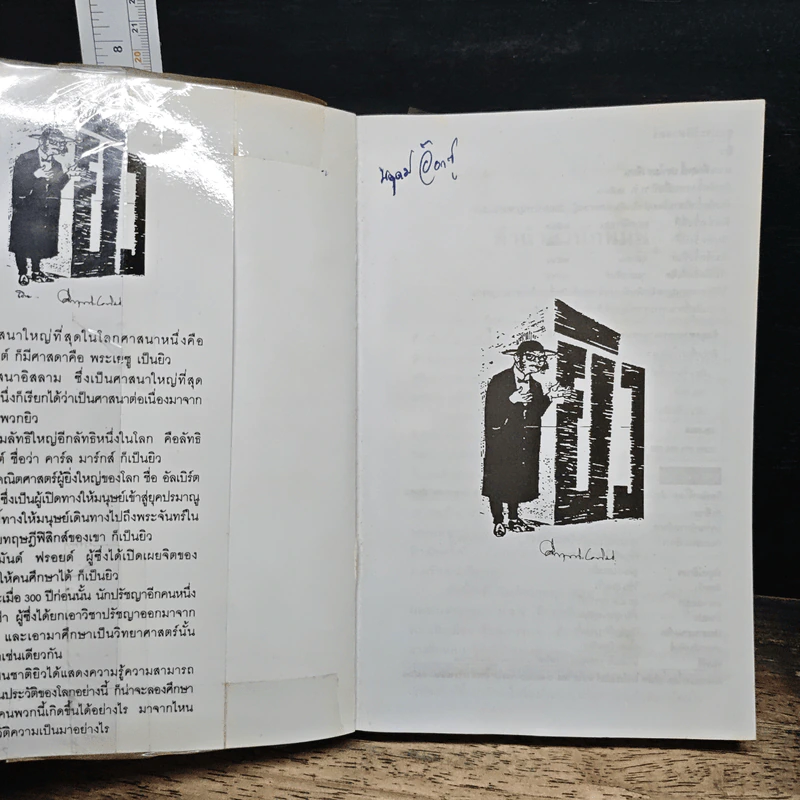 8
20
21
สนาใหญ่ที่สุดในโลกศาสนาหนึ่งคือ
ต์ ก็มีศาสดาคือ พระเยซู เป็นยิว
สนาอิสลาม ซึ่งเป็นศาสนาใหญ่ที่สุด
นึ่งก็เรียกได้ว่าเป็นศาสนาต่อเนื่องมาจาก
พวกยิว
มลัทธิใหญ่อีกลัทธิหนึ่งในโลก คือลัทธิ
ต์ ชื่อว่า คาร์ล มาร์กส์ ก็เป็นยิว
คณิตศาสตร์ผู้ยิ่งใหญ่ของโลก ชื่อ อัลเบิร์ต
ซึ่งเป็นผู้เปิดทางให้มนุษย์เข้าสู่ยุคปรมาณู
ทางให้มนุษย์เดินทางไปถึงพระจันทร์ใน
ยทฤษฎีฟิสิกส์ของเขา ก็เป็นยิว
มันด์ ฟรอยด์ ผู้ซึ่งได้เปิดเผยจิตของ
ให้คนศึกษาได้ ก็เป็นยิว
ะเมื่อ 300 ปีก่อนนั้น นักปรัชญาอีกคนหนึ่ง
ซ่า ผู้ซึ่งได้ยกเอาวิชาปรัชญาออกมาจาก
และเอามาศึกษาเป็นวิทยาศาสตร์นั้น
วเช่นเดียวกัน
นชาติยิวได้แสดงความรู้ความสามารถ
นประวัติของโลกอย่างนี้ ก็น่าจะลองศึกษา
คนพวกนี้เกิดขึ้นได้อย่างไร มาจากไหน
วัติความเป็นมาอย่างไร
ยิว